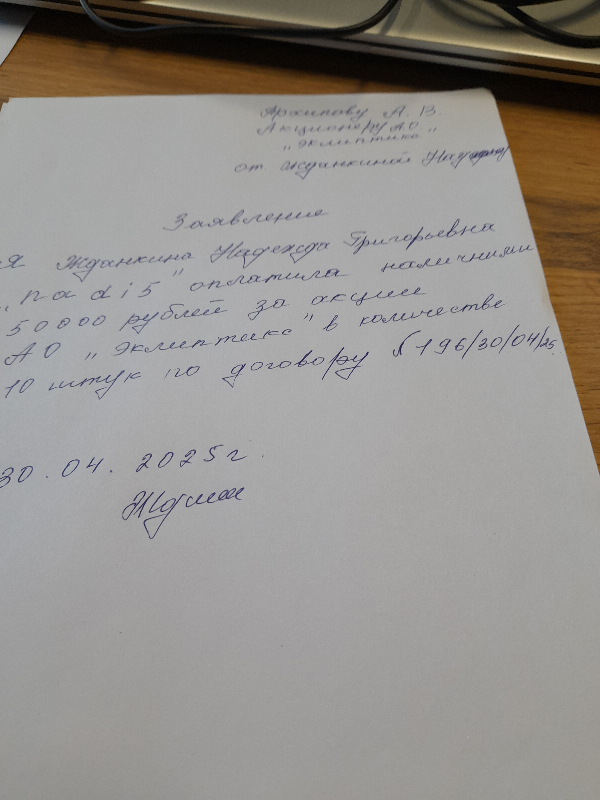 Архипову А. В.
Акционеру АО
„Эклиптика"
от Жданкиной
Заявление
Я Жданкина Надежда Григорьевна
„nadi5" оплатила наличними
50000 рублей за акции
АО „Эклиптика" в количестве
10 штук по договору №196/30/04/25.
30.04.2025г.